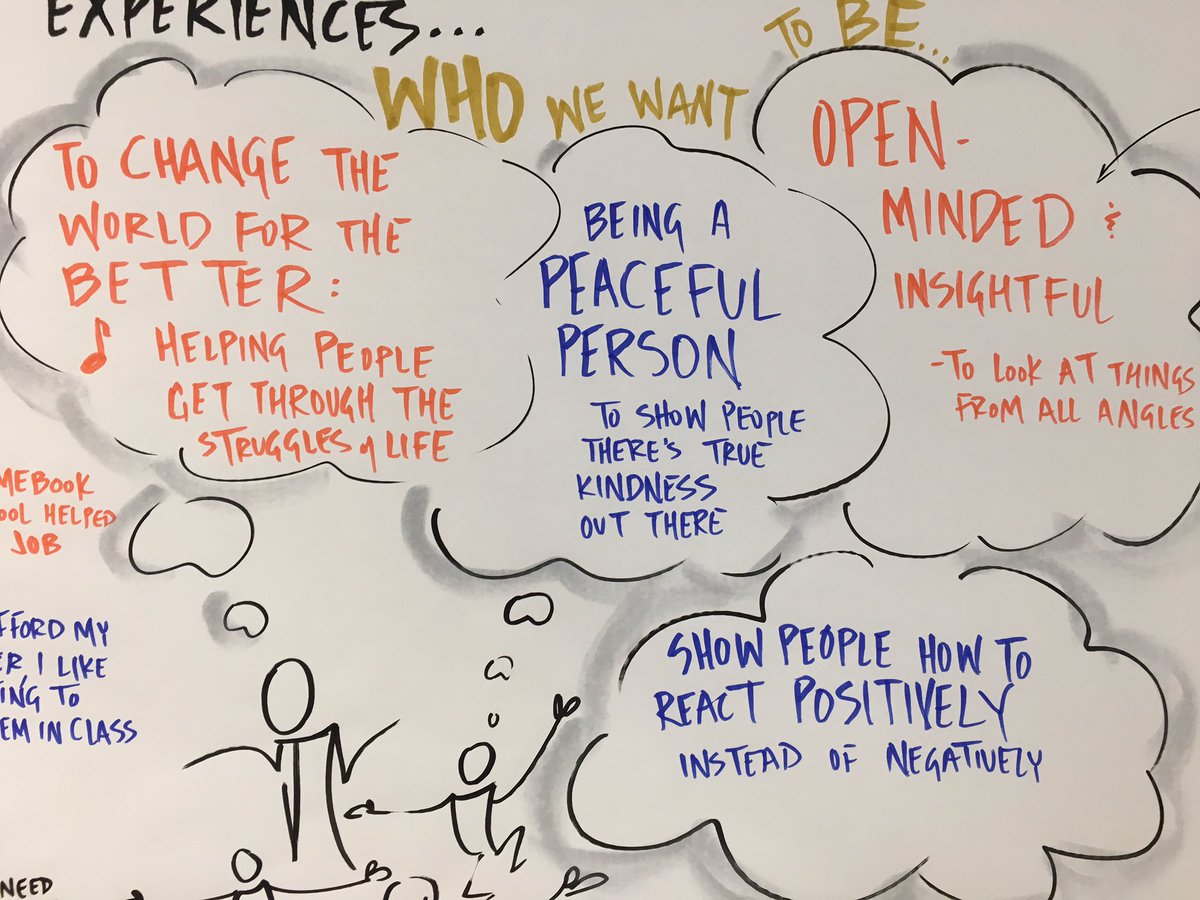 EXPERIENCES...
WHO WE WANT TO BE...
TO CHANGE THE
WORLD FOR THE
BETTER:
HELPING PEOPLE
GET THROUGH THE
STRUGGLES of LIFE
BEING A
PEACEFUL
PERSON
TO SHOW PEOPLE
THERE'S TRUE
KINDNESS
OUT THERE
OPEN-
MINDED &
INSIGHTFUL
-TO LOOK AT THINGS
FROM ALL ANGLES
SHOW PEOPLE HOW TO
REACT POSITIVELY
INSTEAD OF NEGATIVELY
HELPED
JOB
MY
I LIKE
TO
IN CLASS
NEED